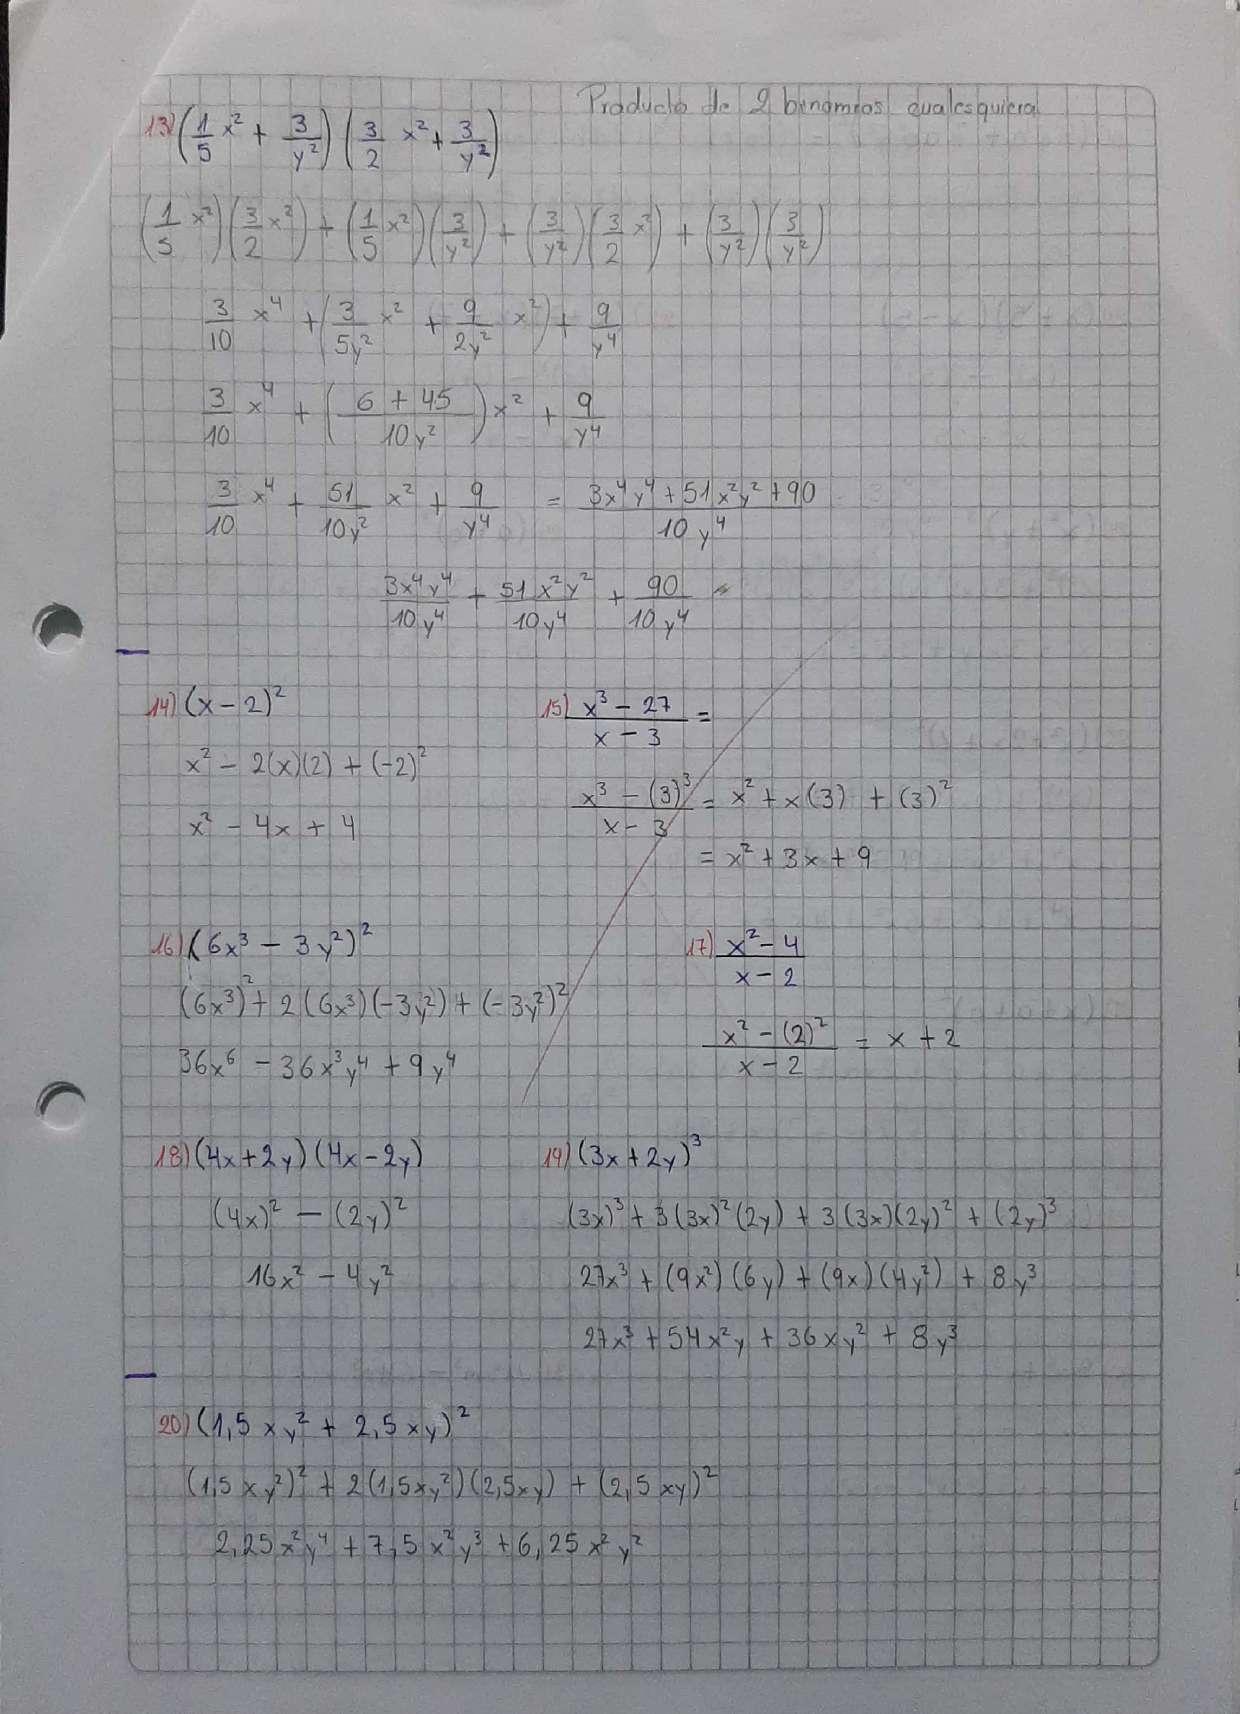 Producto de 2 binomios cualesquiera
13) (1/5 x² + 3/y²) (3/2 x² + 3/y²)
(1/5 x²)(3/2 x²) + (1/5 x²)(3/y²) + (3/y²)(3/2 x²) + (3/y²)(3/y²)
3/10 x⁴ + (3/5y² x² + 9/2y² x²) + 9/y⁴
3/10 x⁴ + (6 + 45/10y²) x² + 9/y⁴
3/10 x⁴ + 51/10y² x² + 9/y⁴ = 3x⁴y⁴ + 51x²y² + 90/10y⁴
3x⁴y⁴/10y⁴ + 51x²y²/10y⁴ + 90/10y⁴
14) (x - 2)²
x² - 2(x)(2) + (-2)²
x² - 4x + 4
15) x³ - 27/x - 3 =
x³ - (3)³/x - 3 = x² + x(3) + (3)²
= x² + 3x + 9
16) (6x³ - 3y²)²
(6x³)² + 2(6x³)(-3y²) + (-3y²)²
36x⁶ - 36x³y⁴ + 9y⁴
17) x² - 4/x - 2
x² - (2)²/x - 2 = x + 2
18) (4x + 2y) (4x - 2y)
(4x)² - (2y)²
16x² - 4y²
19) (3x + 2y)³
(3x)³ + 3(3x)²(2y) + 3(3x)(2y)² + (2y)³
27x³ + (9x²)(6y) + (9x)(4y²) + 8y³
27x³ + 54x²y + 36xy² + 8y³
20) (1,5xy² + 2,5xy)²
(1,5xy²)² + 2(1,5xy²)(2,5xy) + (2,5xy)²
2,25x²y⁴ + 7,5x²y³ + 6,25x²y²